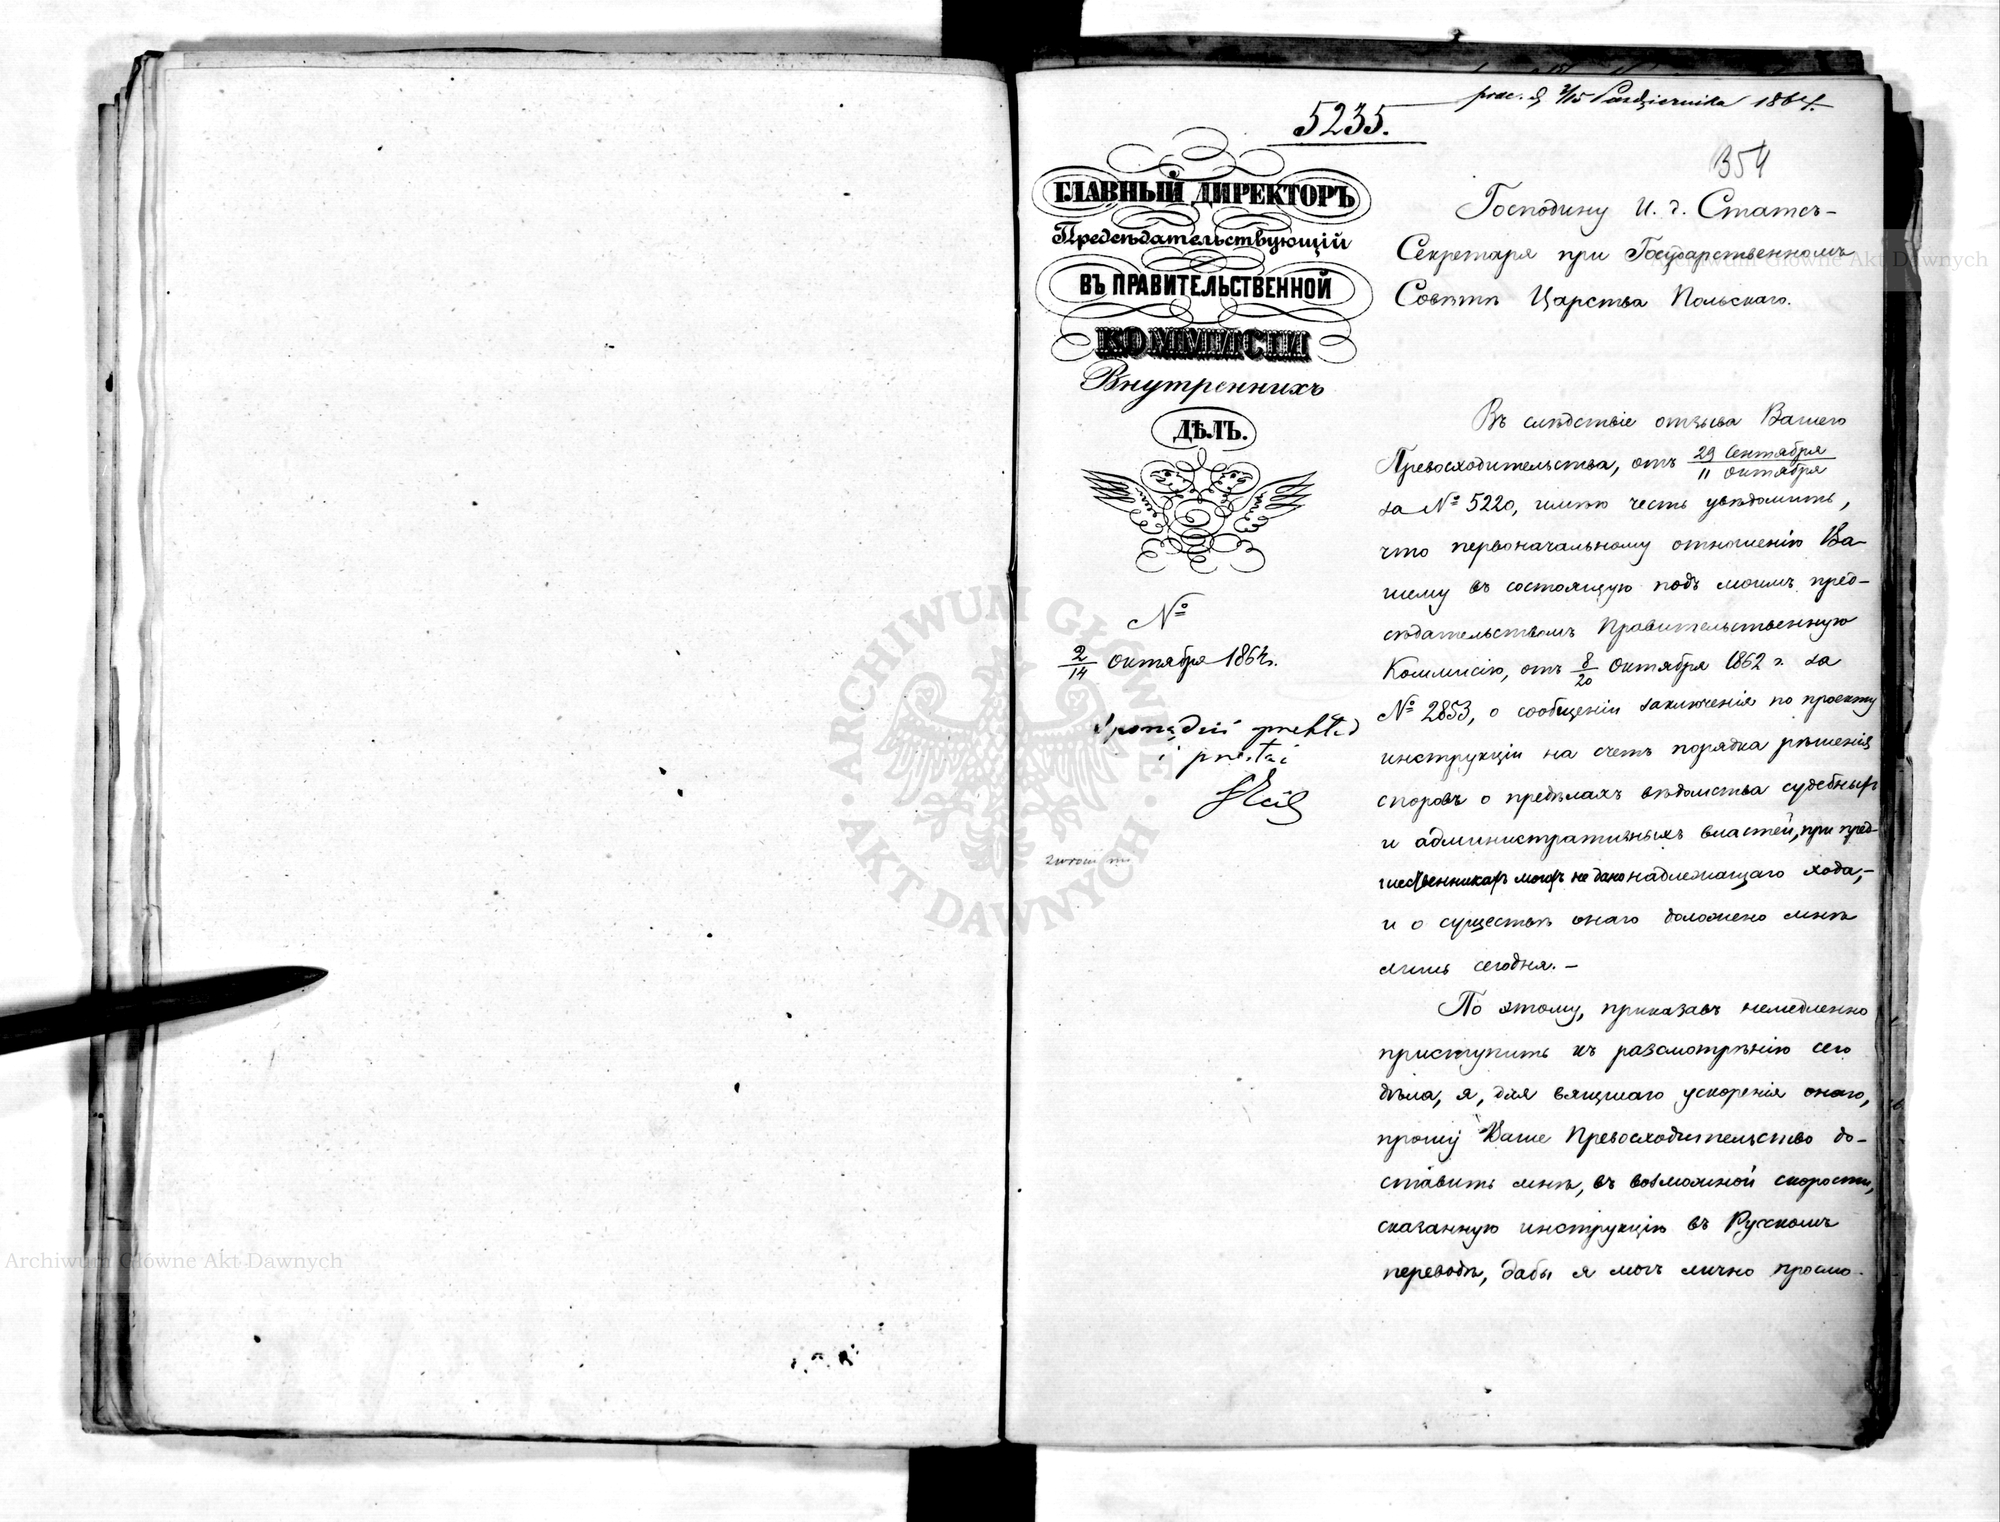 5235.
prae. d. 3/15 Października 1864.
354
ГЛАВНЫЙ ДИРЕКТОРЪ
Предсѣдательствующій
ВЪ ПРАВИТЕЛЬСТВЕННОЙ
КОММИСІИ
Внутреннихъ
ДѢЛЪ.
№
2/14 Октября 1864 г.
Sporządzić przekład
i przesłać
Господину И. д. Статсъ-
Секретаря при Государственномъ
Совѣтѣ Царства Польскаго.
Въ слѣдствіе отзыва Вашего
Превосходительства, отъ 29 Сентября / 11 Октября
за № 5220, имѣю честь увѣдомить,
что первоначальному отношенію Ва-
шему въ состоящую подъ моимъ пред-
сѣдательствомъ Правительственную
Коммисію, отъ 8/20 Октября 1862 г. за
№ 2853, о сообщеніи заключенія по проекту
инструкціи на счетъ порядка рѣшенія
споровъ о предѣлахъ вѣдомства судебныхъ
и административныхъ властей, при пред-
шественникахъ моихъ не дано надлежащаго хода,-
и о существѣ онаго доложено мнѣ
лишь сегодня.-
По этому, приказавъ немедленно
приступить къ разсмотрѣнію сего
дѣла, я, для вящшаго ускоренія онаго,
прошу Ваше Превосходительство до-
ставить мнѣ, въ возможной скорости,
сказанную инструкцію въ Русскомъ
переводѣ, дабы я могъ лично просмо-
Archiwum Główne Akt Dawnych
ARCHIWUM GŁÓWNE
AKT DAWNYCH
Archiwum Główne Akt Dawnych